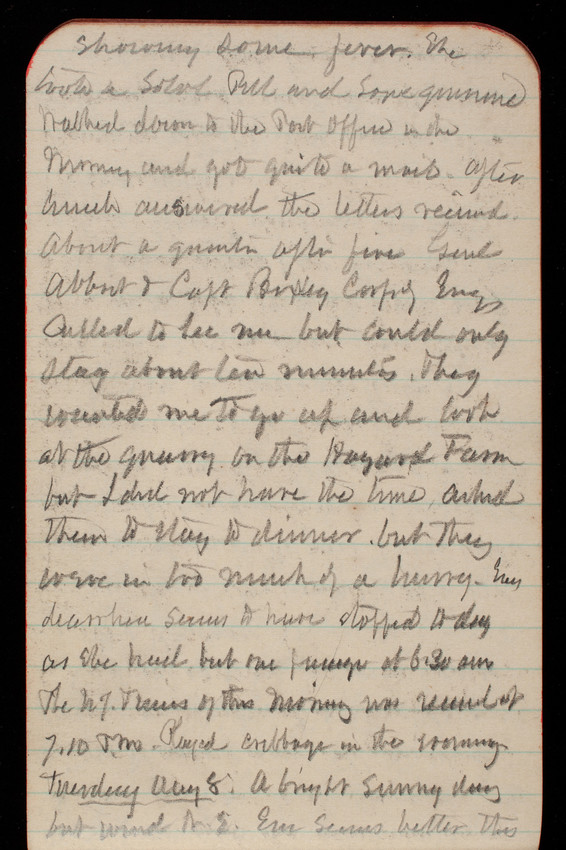 showing some fever. She
took a Solol Pill and some quinine
Walked down to the Post Office in the
Morning and got quite a mail. after
lunch answered the letters received.
About a quarter after five Genl
Abbot & Capt Corps Eng
Called to see me but could only
stay about ten minutes. They
wanted me to go up and look
at the quarry on the Hazard Farm
but I did not have the time, asked
them to stay to dinner. but they
were in too much of a hurry. Em's
diarrhea seems to have stopped to day
as she had but one passage at 6:30 am
The N.Y. Times of this Morning was received at
7.10 P.M. Played cribbage in the evening
Tuesday Aug 8. A bright Sunny day
but wind N E. Em seems better this